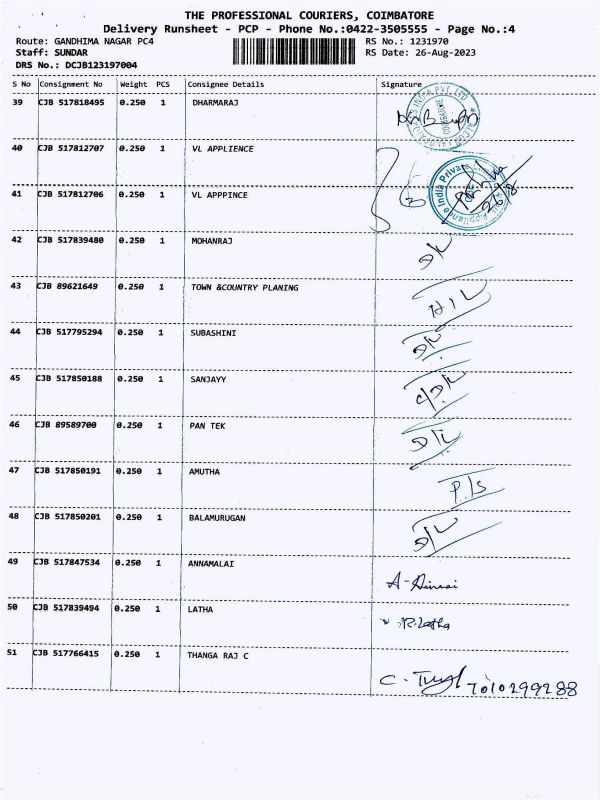 THE PROFESSIONAL COURIERS, COIMBATORE
Delivery Runsheet - PCP - Phone No.:0422-3505555 - Page No.:4
Route: GANDHIMA NAGAR PC4 RS No.: 1231970
Staff: SUNDAR RS Date: 26-Aug-2023
DRS No.: DCJB123197004
S No Consignment No Weight PCS Consignee Details Signature
39 CJB 517818495 0.250 1 DHARMARAJ
40 CJB 517812707 0.250 1 VL APPLIENCE
41 CJB 517812706 0.250 1 VL APPPINCE
42 CJB 517839480 0.250 1 MOHANRAJ D/L
43 CJB 89621649 0.250 1 TOWN &COUNTRY PLANING
44 CJB 517795294 0.250 1 SUBASHINI D/L
45 CJB 517850188 0.250 1 SANJAYY
46 CJB 89589700 0.250 1 PAN TEK D/L
47 CJB 517850191 0.250 1 AMUTHA P/S
48 CJB 517850201 0.250 1 BALAMURUGAN D/L
49 CJB 517847534 0.250 1 ANNAMALAI
50 CJB 517839494 0.250 1 LATHA R.Latha
51 CJB 517766415 0.250 1 THANGA RAJ C 7010299288